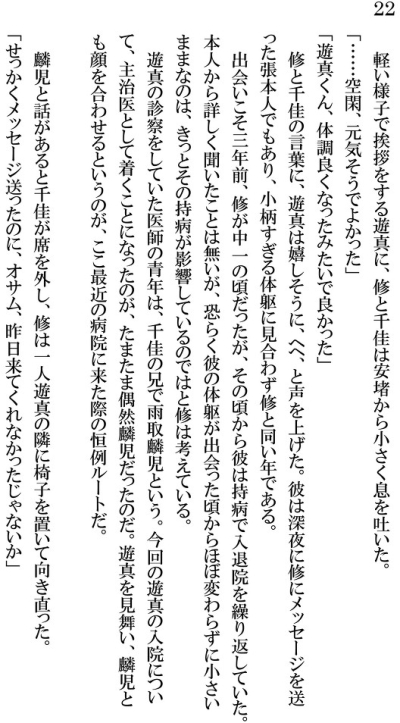 22
軽い様子で挨拶をする遊真に、修と千佳は安堵から小さく息を吐いた。
「……空閑、元気そうでよかった」
「遊真くん、体調良くなったみたいで良かった」
修と千佳の言葉に、遊真は嬉しそうに、へへ、と声を上げた。彼は深夜に修にメッセージを送
った張本人でもあり、小柄すぎる体躯に見合わず修と同い年である。
出会いこそ三年前、修が中一の頃だったが、その頃から彼は持病で入退院を繰り返していた。
本人から詳しく聞いたことは無いが、恐らく彼の体躯が出会った頃からほぼ変わらずに小さい
ままなのは、きっとその持病が影響しているのではと修は考えている。
遊真の診察をしていた医師の青年は、千佳の兄で雨取麟児という。今回の遊真の入院につい
て、主治医として着くことになったのが、たまたま偶然麟児だったのだ。遊真を見舞い、麟児と
も顔を合わせるというのが、ここ最近の病院に来た際の恒例ルートだ。
麟児と話があると千佳が席を外し、修は一人遊真の隣に椅子を置いて向き直った。
「せっかくメッセージ送ったのに、オサム、昨日来てくれなかったじゃないか」